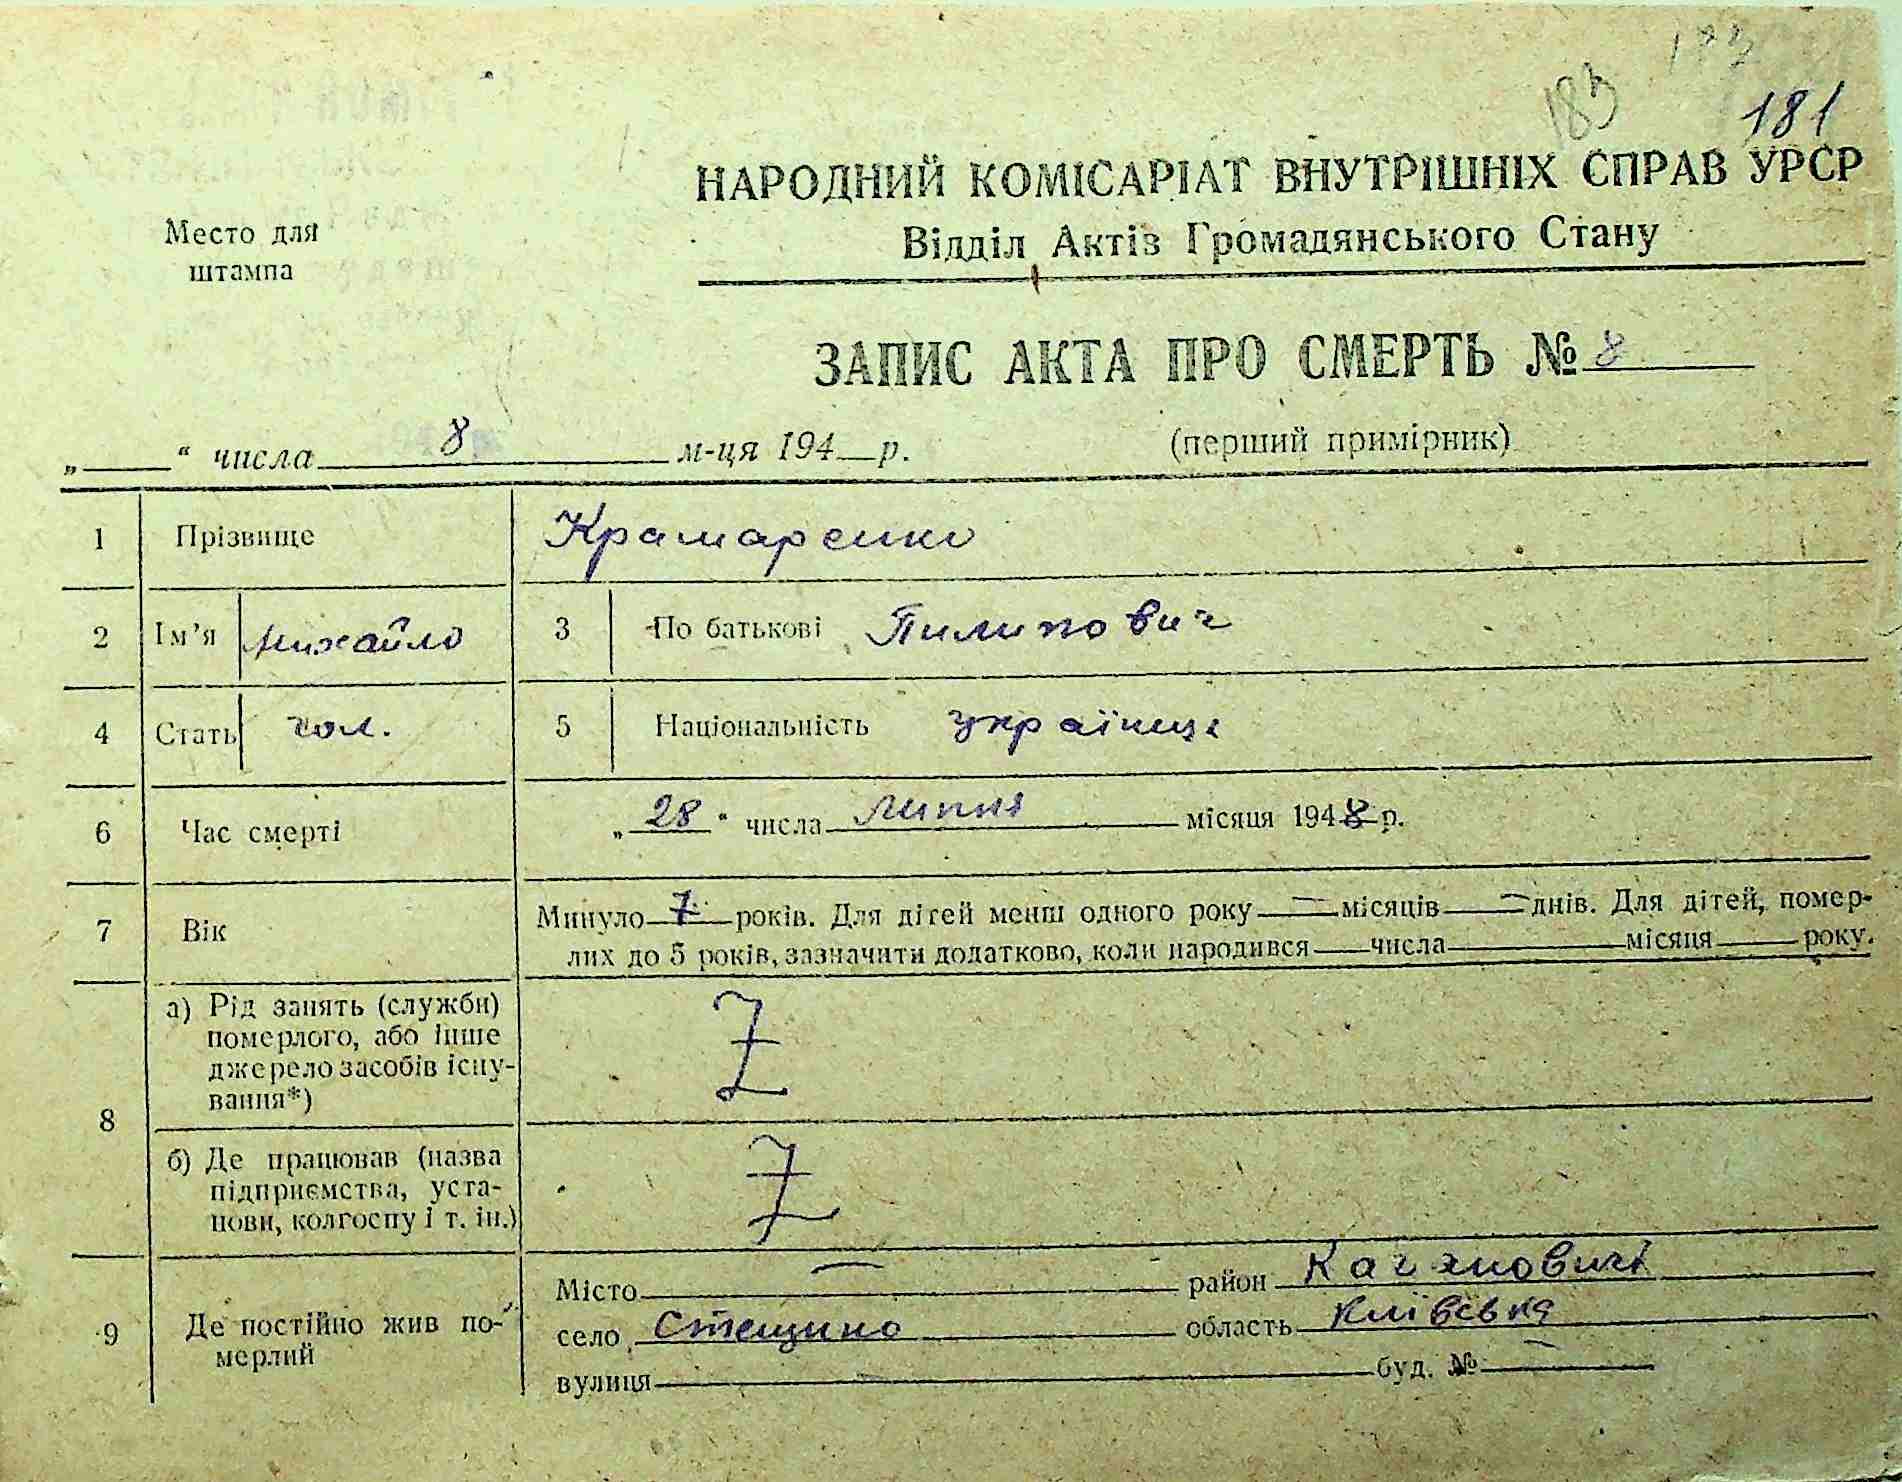 183
181
НАРОДНИЙ КОМІСАРІАТ ВНУТРІШНІХ СПРАВ УРСР
Відділ Актів Громадянського Стану
Место для
штампа
ЗАПИС АКТА ПРО СМЕРТЬ № 8
„ “ числа 8 м-ця 194 р. (перший примірник)
1 Прізвище Крамаренко
2 Ім’я Михайло 3 По батькові Пилипович
4 Стать чол. 5 Національність українець
6 Час смерті „28“ числа липня місяця 1948 р.
7 Вік Минуло 7 років. Для дітей менш одного року — місяців — днів. Для дітей, помер-
лих до 5 років, зазначити додатково, коли народився числа місяця року.
8 а) Рід занять (служби)
померлого, або інше
джерело засобів існу-
вання*)
б) Де працював (назва
підприємства, уста-
нови, колгоспу і т. ін.)
9 Де постійно жив по-
мерлий
Місто — район Кагановичі
село Стещино область Київська
вулиця — буд. № —